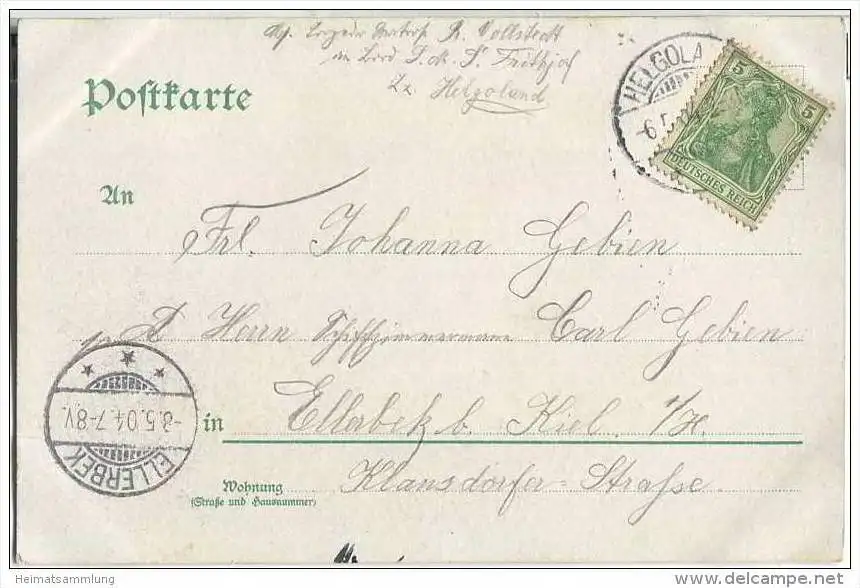 R. Vollstedt
an Bord S. M. S. Frithjof
Helgoland
Postkarte
HELGOLA
-6.5.
5
5
DEUTSCHES REICH
An
Frl. Johanna Gebien
Herrn Schiffzimmermann Carl Gebien
in Ellerbek b. Kiel
Klausdorfer-Straße.
Wohnung
(Straße und Hausnummer)
-8.5.04.7-8V.
ELLERBEK
Heimatsammlung
www.delcampe.net